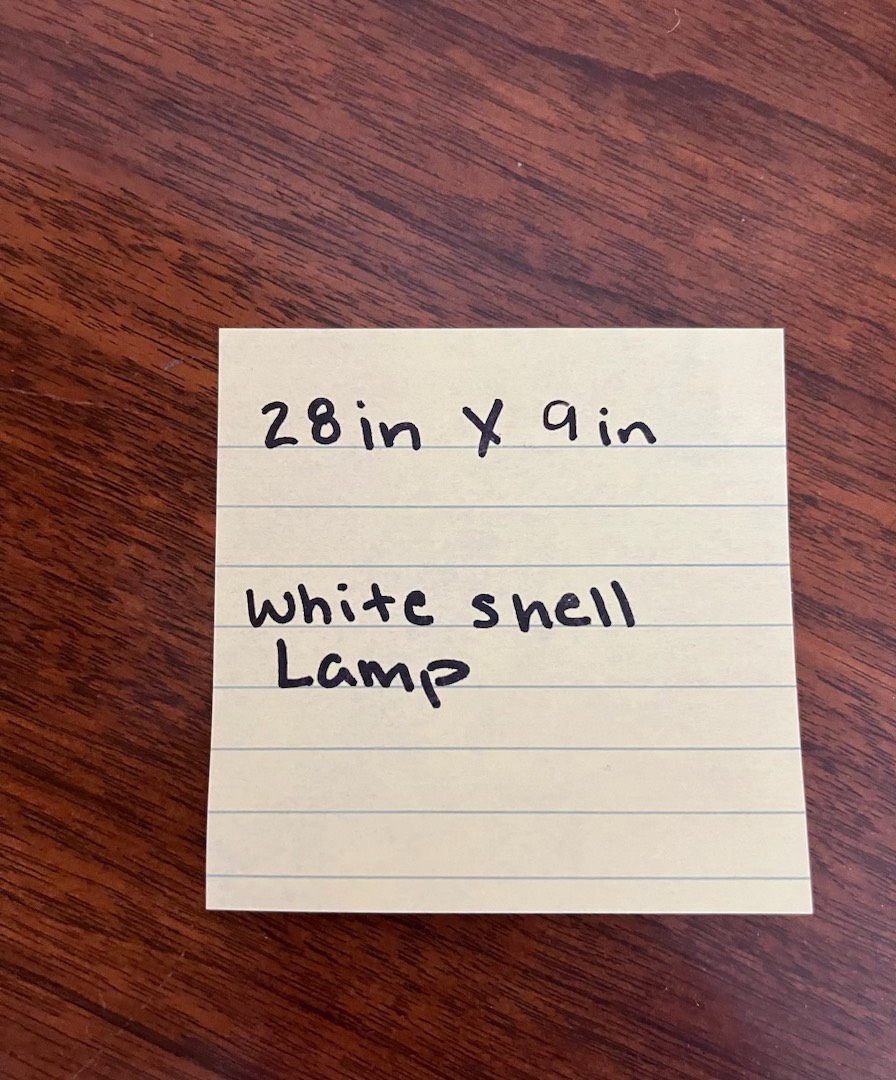 28in X 9in
white shell
Lamp